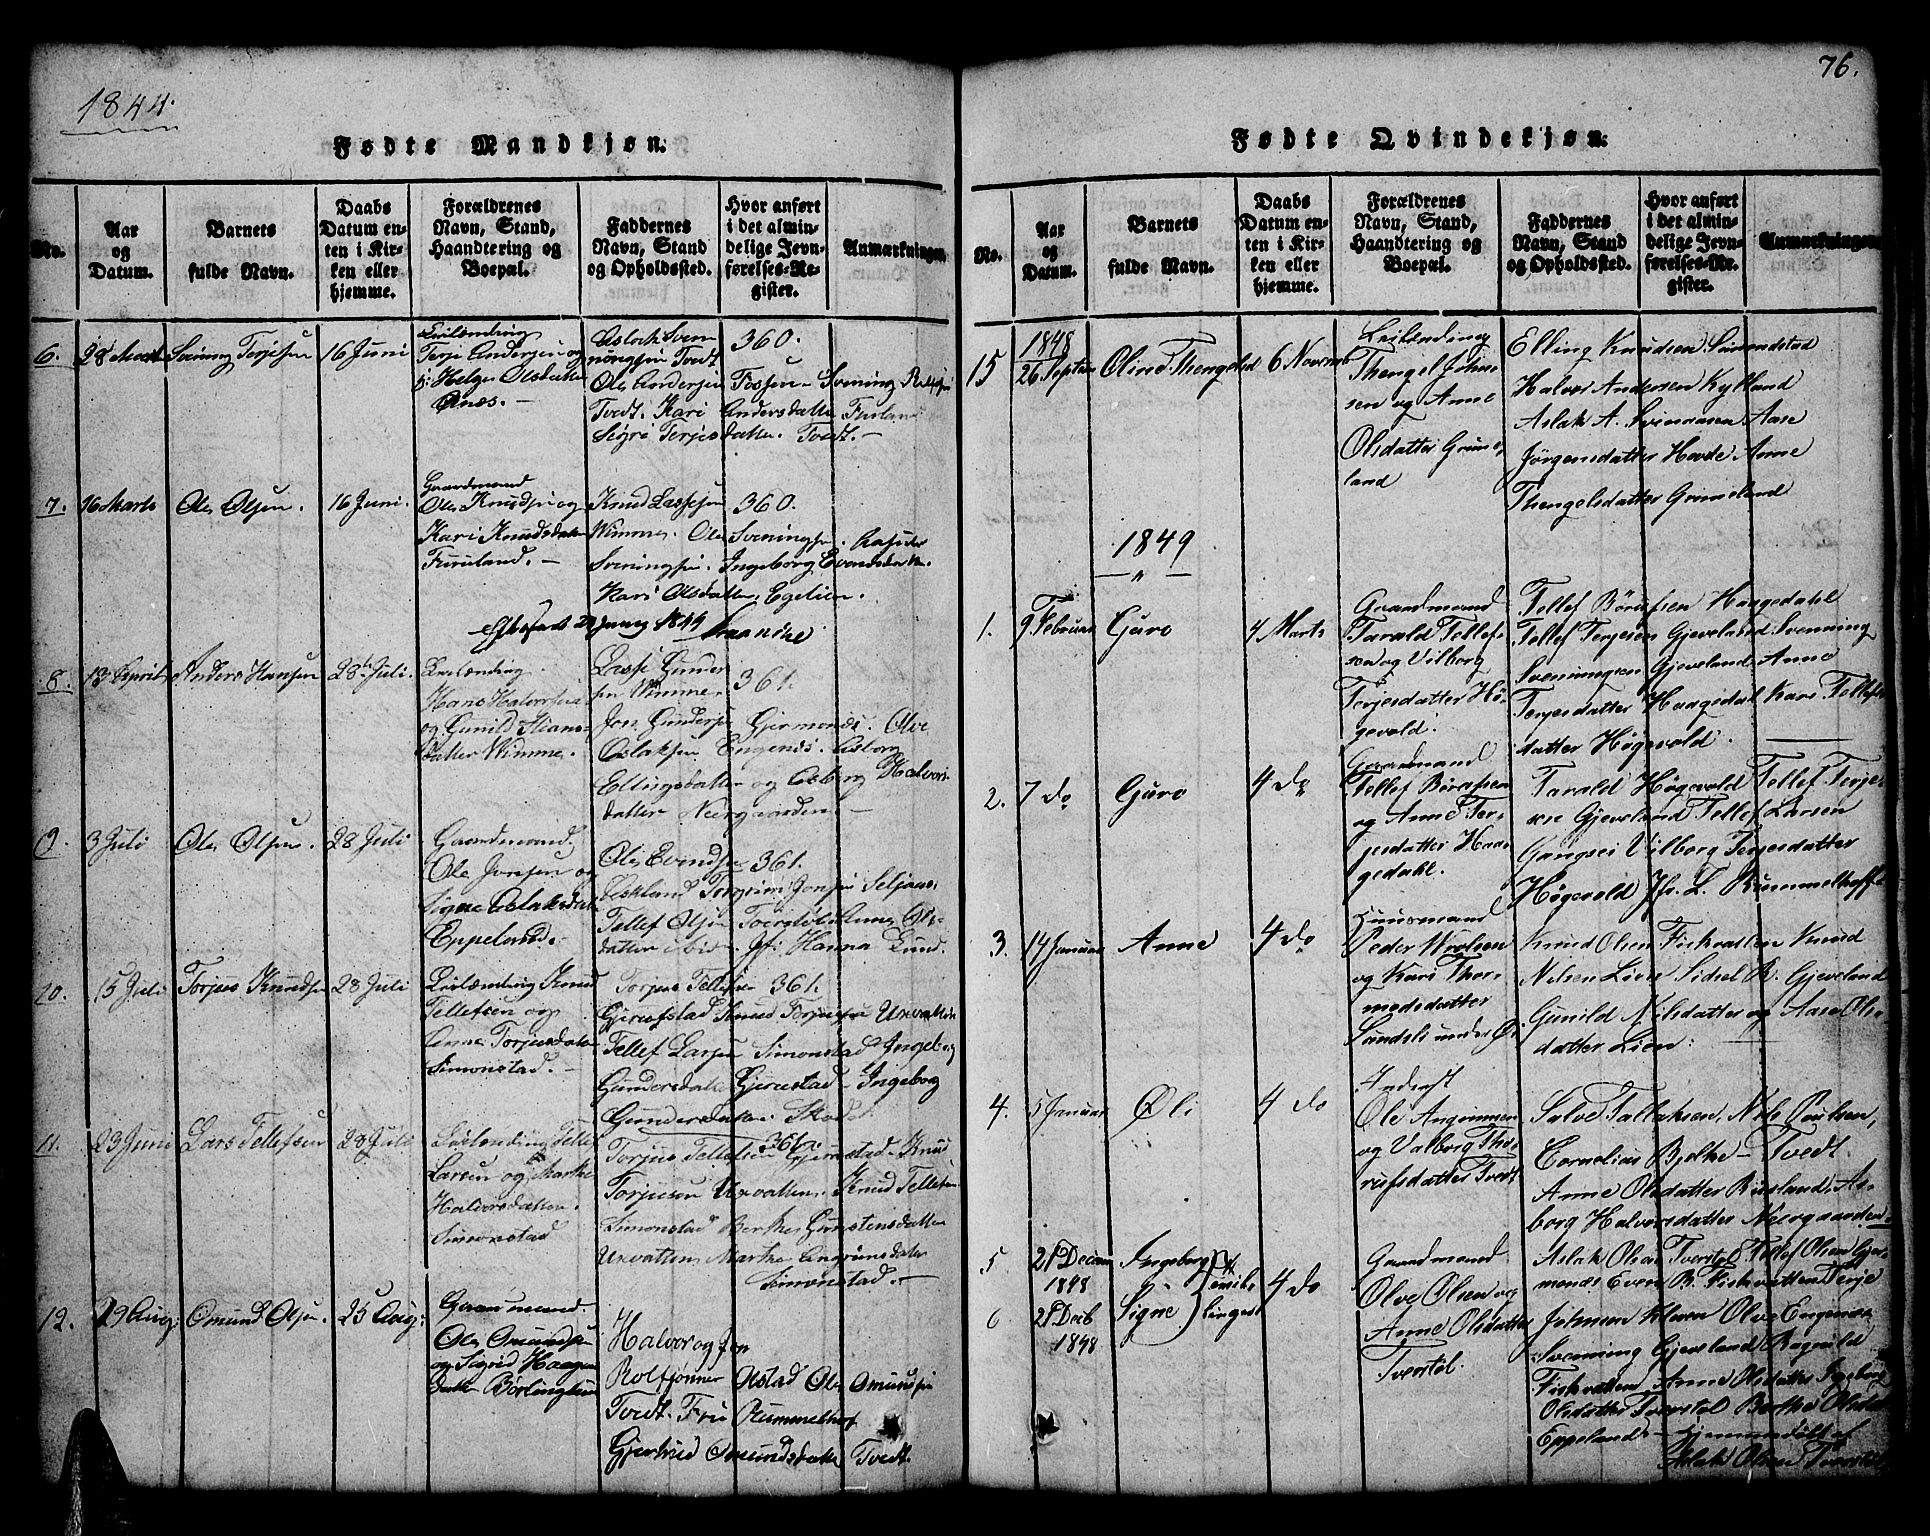 1844.
Fødte Mandkjøn.
No.
Aar og Datum.
Barnets fulde Navn.
Daabs Datum enten i Kirken eller hjemme.
Forældrenes Navn, Stand, Haandtering og Boepæl.
Faddernes Navn, Stand og Opholdssted.
Hvor anført i det almindelige Jevnførelses-Register.
Anmærkninger.
6. 28 Marti Svening Terjesen 16 Juni
Leilænding
Terje Andersen og
Helge Olsdatter
Aslak Sven-
ningsen Tvedt 360.
Ole Andersen Fossen Svening
Tvedt. Kari Andersdatter Furland
Sigri Terjesdatter Tvedt.
7. 16 Marti Ole Olsen. 16 Juni.
Gaardmand
Ole Knudsen og
Kari Knudsdatter
Furuland.
Knud Lassesen 360.
Wimme. Ole Sveningsen.
Sveningsen. Ingeborg Evensdatter.
Kari Olsdatter, Egelien.
8. 13 April Anders Hansen 28 Juli.
Leilænding
Hans Halvorsen
og Gunild
datter Wimme.
Lasse Gunder-
sen Wimme 361.
Jon Gundersen Gjermonds. Olve
Aslaksen Engenes. Asborg
Ellingsdatter og Asborg Halvors-
datter Neergaarden
9. 3 Juli Ole Olsen. 28 Juli
Gaardmand.
Ole Jensen og
Signe Aslaksdatter
Eppeland.
Ole Evendsen 361.
Eskland Torgrim Jonsen
Tellef Olsen Tverstøl Anne Ols-
datter Jfr: Hanna Lund.
10. 15 Juli Torjus Knudsen 28 Juli
Leilænding Knud
Tellefsen og
Anne Torjusdatter
Simonstad.
Torjus Tellefsen 361.
Gjerefstad Knud Torjusen Urvatten
Tellef Larsen Simonstad Ingeborg
Gundersdatter Gjerustad Ingeborg
Gundersdatter
11. 23 Juni Lars Tellefsen 28 Juli
Leilænding Tellef
Larsen og Marthe
Halvorsdatter.
Simonstad
361.
Torjus Tellefsen Gjerustad Knud
Torjusen Urvatten. Knud Tellefsen
Simonstad Berthe
Urvatten Marthe Angrimsdatter
Simonstad.
12. 19 Aug: Omund Olsen. 25 Aug:
Gaardmand.
Ole Omundsen
og Sigrid Haagen-
datter
Halvor og Jon
Rolfsønner Ostad Ole Omundsen
Tvedt. Fru Rummelhoff
Gjertrud Omundsdatter Tvedt.
76.
Fødte Qvindekjøn.
No.
Aar og Datum.
Barnets fulde Navn.
Daabs Datum enten i Kirken eller hjemme.
Forældrenes Navn, Stand, Haandtering og Boepæl.
Faddernes Navn, Stand og Opholdssted.
Hvor anført i det almindelige Jevnførelses-Register.
Anmærkninger.
1848
15 26 Septbr Oline Thengelsd 6 Novemb
Leilending
Thengel Johns-
sen og Anne
Olsdatter Grime-
land
Elling Knudsen Simonstad
Halvor Andersen Kylland
Aslak A. Svensøen Aase
Jørgensdatter Hovde Anne
Thengelsdatter Grimeland
1849
1. 9 Februar Guro 4 Marts
Gaardmand
Tarald Tellef-
sen og Vilborg
Terjesdatter Hø-
gevold.
Tellef Børufsen Haagedahl
Tellef Terjesen Gjeveland Svenning
Svenningsen Gjeveland Anne
Terjesdatter Haagedal Kari Tellefs-
datter Høgevold.
2. 7 do Guro 4 do
Gaardmand
Tellef Børufsen
og Anne Ter-
jesdatter Haa-
gedahl.
Tarald Høgevold Tellef Terje-
sen Gjeveland Tellef Larsen
Gangsei Vilborg Terjesdatter
Høgevold Jfr. L. Rummelhoff
3. 14 Januar Anne 4 do
Huusmand
Peder Wrolsen
og Kari Thor-
modsdatter
Knud Olsen Fiskvatten Knud
Nilsen Lien Sidsel R. Gjeveland
Gunild Nilsdatter og Aase Ols-
datter Lien:
4. 5 Januar Øli 4 do
Inderst
Ole Angrimsen
og Valborg Tha-
rufsdatter Tvedt
Salve Tallaksen, Nils Poulsen,
Cornelius Bjelke Tvedt.
Anne Olsdatter Rusland, As-
borg Halvorsdatter Neergaarden
5 21 Decem 1848 Ingeborg
6 21 Decb 1848 Signe 4 do
Gaardmand
Olve Olsen og
Anne Olsdatter
Tverstøl.
Aslak Olsen Tverstøl Tellef Olsen Gjer-
monds Even B. Fiskvatten Terje
Johnsen Klaven Olve Engenæs
Svenning Gjeveland Ragnild
Fiskvatten Anne Olsdatter Ingeborg
Olsdatter Tverstøl Berthe Olsdat
Eppeland Hjemmedøbt af
Aslak Olsen Tverstøl